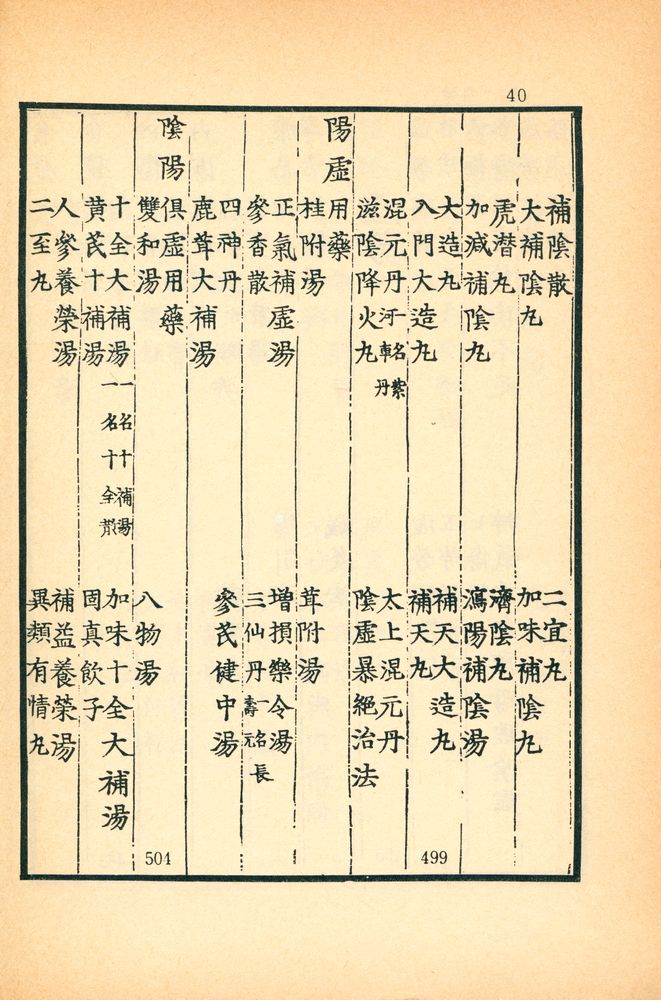 40
補陰散 二宜丸
大補陰丸 加味補陰丸
虎潜丸 濟陰丸
加減補陰丸 瀉陽補陰湯
大造丸 補天大造丸
入門大造丸 補天丸
混元丹 一名紫河車丹 太上混元丹
滋陰降火丸 陰虛暴絕治法
陽虛用藥
桂附湯 茸附湯
正氣補虛湯 增損樂令湯
參香散 三仙丹 一名長壽元
四神丹 參芪健中湯
鹿茸大補湯
陰陽俱虛用藥
雙和湯 八物湯
十全大補湯 一名十補湯 一名十全散 加味十全大補湯
黄芪十補湯 固真飲子
人參養榮湯 補益養榮湯
二至丸 異類有情丸
499
504